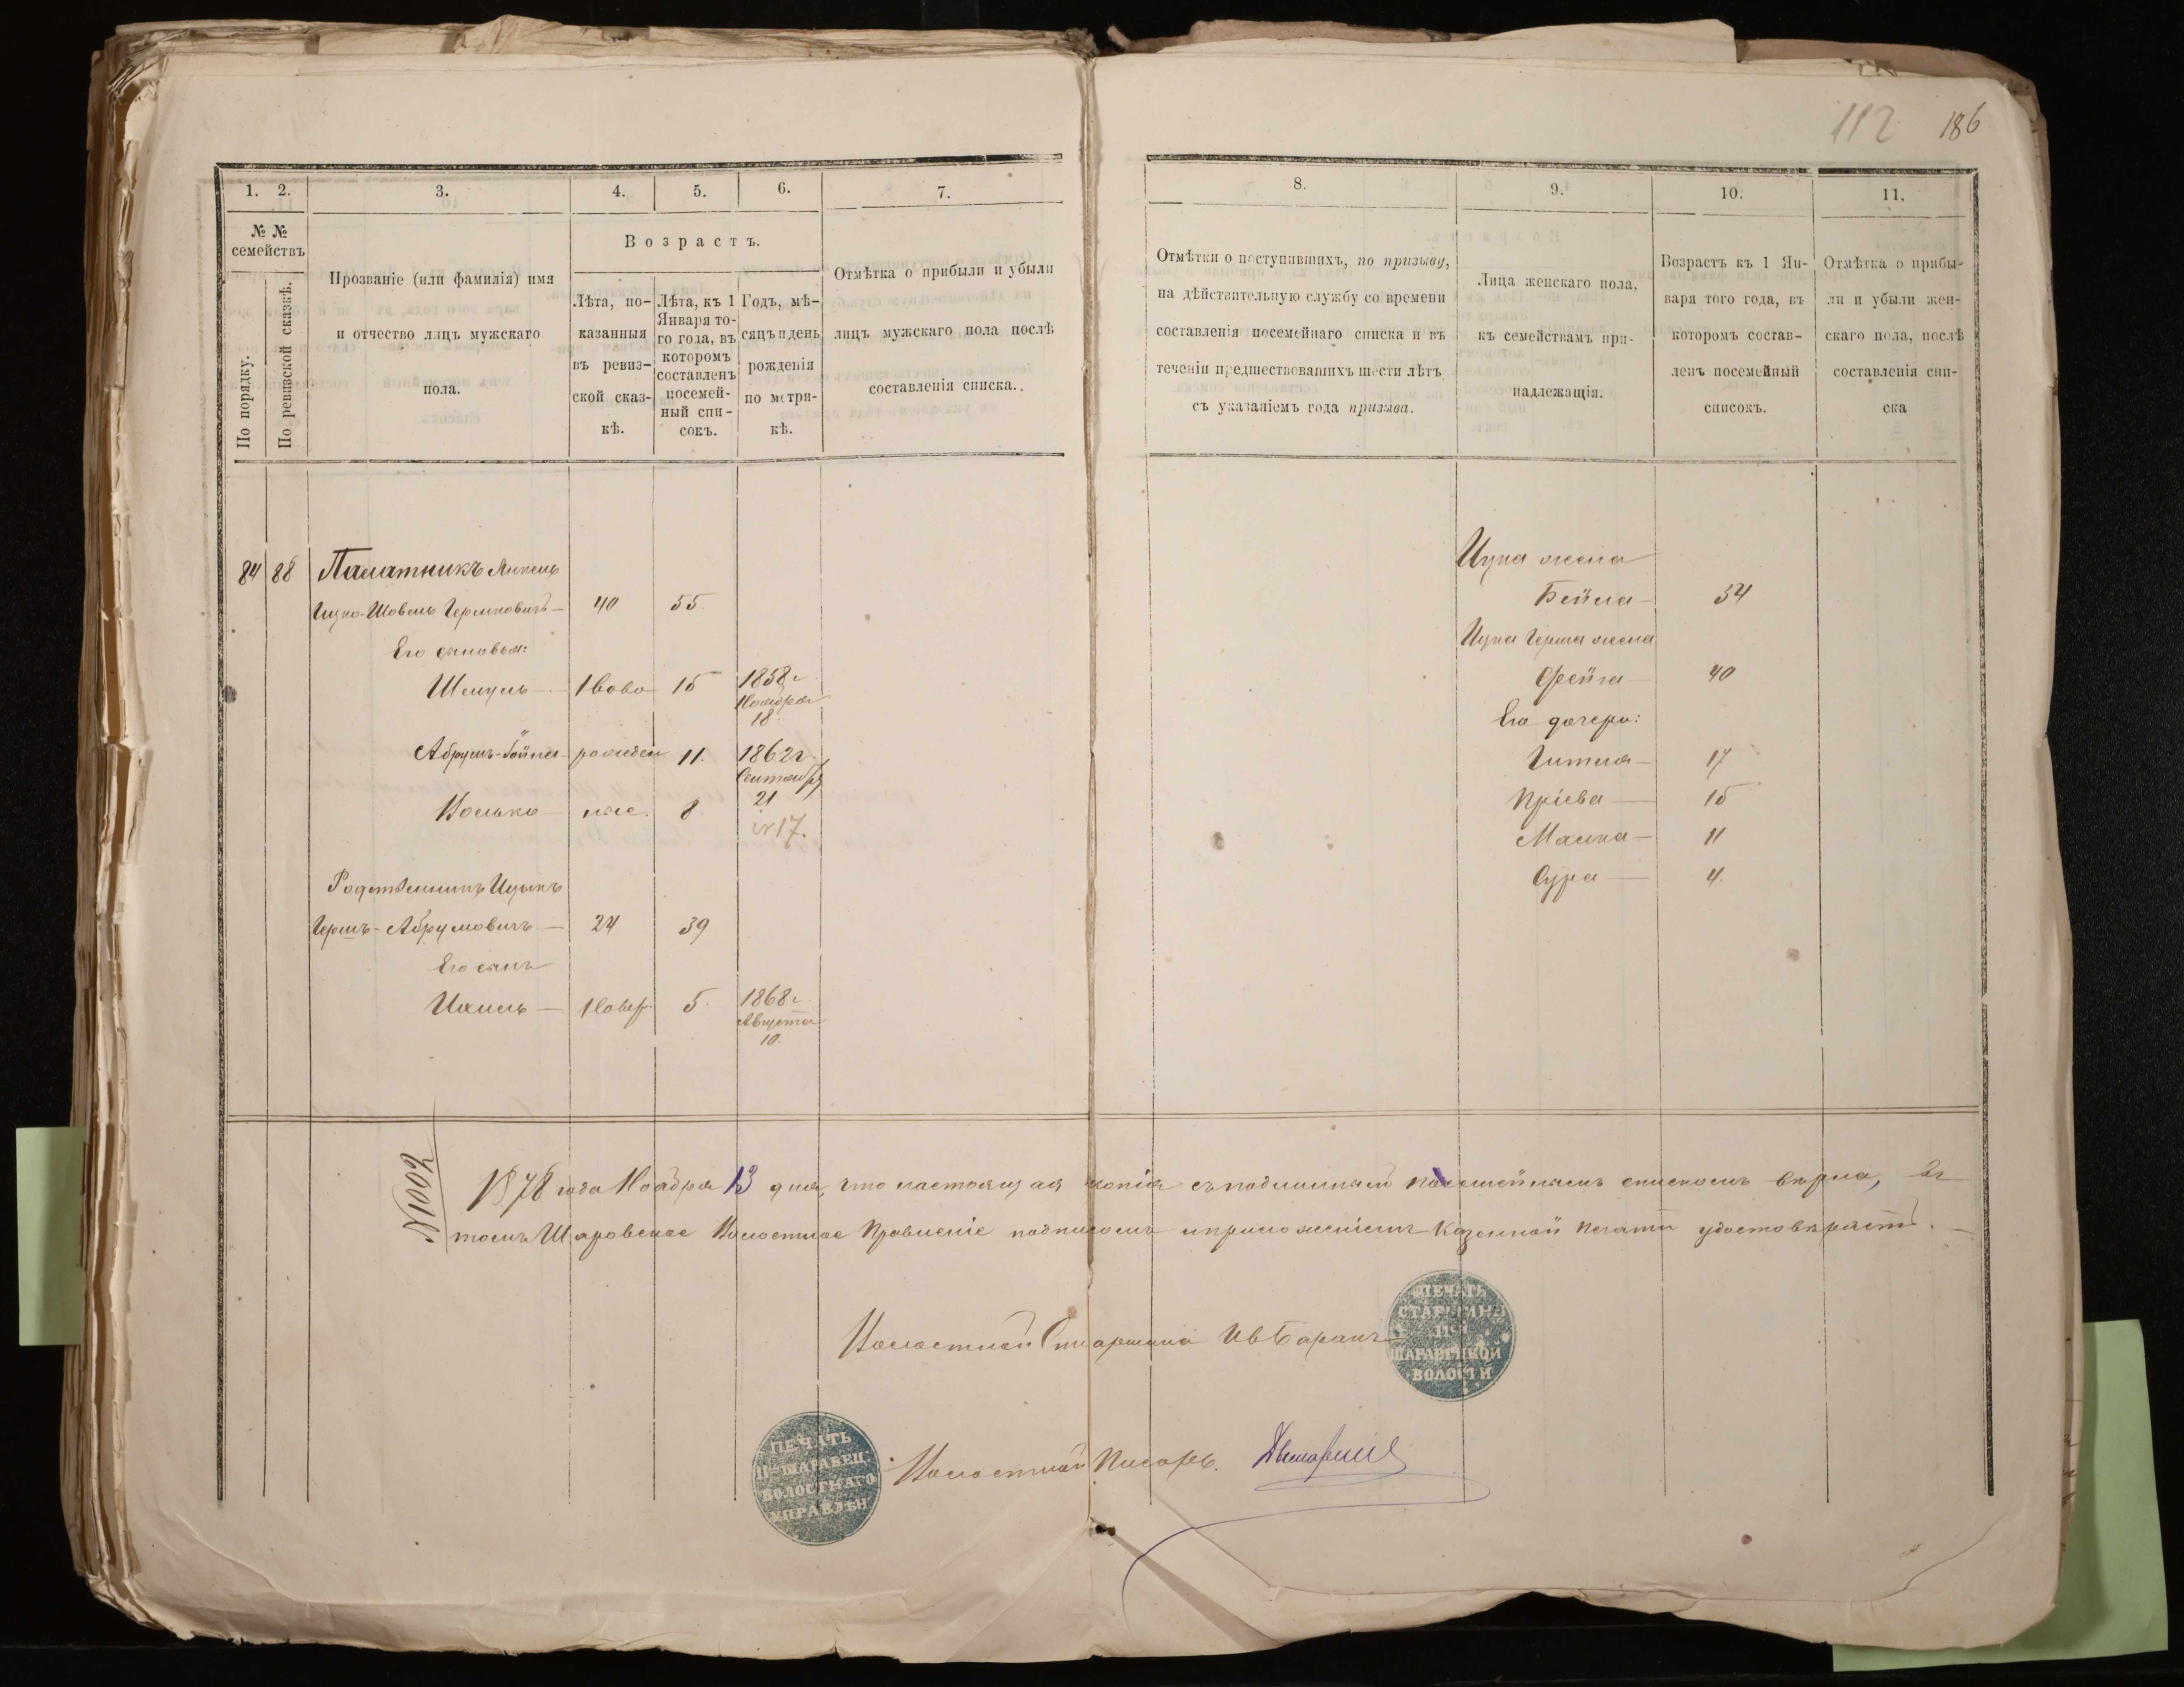 112 186
1. 2. 3. 4. 5. 6. 7.
№ № семействъ
По порядку.
По ревизской сказкѣ.
Прозваніе (или фамилія) имя
и отчество лицъ мужскаго
пола.
Возрастъ.
Лѣта, по-
казанныя
въ ревиз-
ской сказ-
кѣ.
Лѣта, къ 1
Января то-
го года, въ
которомъ
составленъ
посемей-
ный спи-
сокъ.
Годъ, мѣ-
сяцъ и день
рожденія
по метри-
кѣ.
Отмѣтка о прибыли и убыли
лицъ мужскаго пола послѣ
составленія списка..
8. 9. 10. 11.
Отмѣтки о поступившихъ, по призыву,
на дѣйствительную службу со времени
составленія посемейнаго списка и въ
теченіи предшествовавшихъ шести лѣтъ
съ указаніемъ года призыва.
Лица женскаго пола,
къ семействамъ при-
надлежащія.
Возрастъ къ 1 Ян-
варя того года, въ
которомъ состав-
ленъ посемейный
списокъ.
Отмѣтка о прибы-
ли и убыли жен-
скаго пола, послѣ
составленія спи-
ска
84 88
Ицко-Шовель Гершковичъ — 40 55.
Его сыновья:
Шмуль — Ново 15 1858 г Ноября 18
Абрумъ- рожден 11. 1862 г Сентября 21
Волько — ные. 8. 17.
Родственникъ Ицыкъ
Гершъ-Абрумовичъ — 24 39
Его сынъ
5. 1868 г Августа 10.
Ицка жена
Бейла — 54
Ицка Герша жена
Фейга 40
Его дочери:
Гитля — 17
15
Малка — 11
Сура — 4.
N1002
1878 года Ноября 13 дня, что настоящая копія съ подлиннымъ посемейнымъ спискомъ вѣрна, въ
томъ Шаровское Волостное Правленіе подписомъ и приложеніемъ Казенной печати удостовѣряетъ. —
Волостной Старшина Ив Баранъ
ПЕЧАТЬ
СТАРШИНЫ
ВОЛОСТИ
ПЕЧАТЬ
ШАРАВЕЦ.
ВОЛОСТНАГО
УПРАВЛѢН
Волостной Писарь.